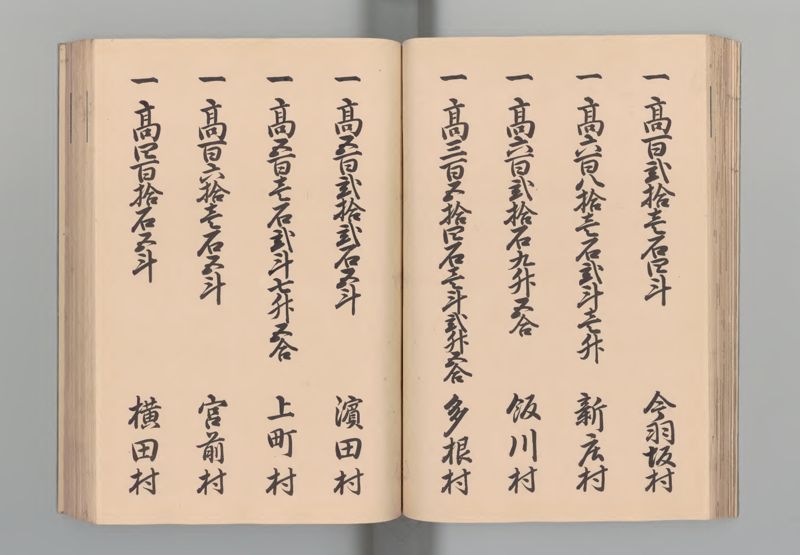 一 高百弐拾壱石四斗 今羽坂村
一 高六百八拾壱石弐斗壱升 新庄村
一 高六百弐拾石九升五合 飯川村
一 高三百五拾四石壱斗弐升五合 多根村
一 高五百弐拾弐石五斗 濱田村
一 高五百壱石弐斗七升五合 上町村
一 高百六拾壱石五斗 宮前村
一 高四百拾石五斗 横田村